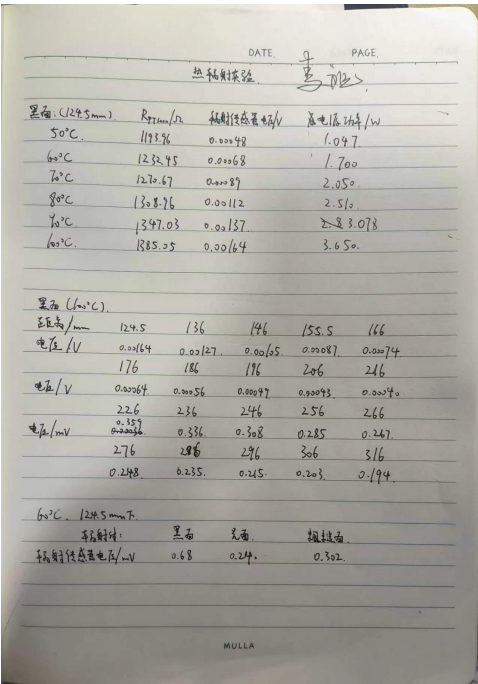 DATE. PAGE.
热辐射实验
黑面:(124.5mm) RPT1000/Ω 辐射传感器电压/V 总电压功率/W
50°C 1193.96 0.00048 1.047
60°C 1232.45 0.00068 1.700
70°C 1270.67 0.00089 2.050
80°C 1308.96 0.00112 2.510
90°C 1347.03 0.00137 3.078
100°C 1385.05 0.00164 3.650
黑面(100°C)
距离/mm 124.5 136 146 155.5 166
电压/V 0.00164 0.00127 0.00105 0.00087 0.00074
176 186 196 206 216
电压/V 0.00064 0.00056 0.00049 0.00043 0.00040
226 236 246 256 266
电压/mV 0.359 0.336 0.308 0.285 0.267
276 286 296 306 316
0.248 0.235 0.215 0.203 0.194
60°C 124.5mm下
辐射时: 黑面 光面 粗糙面
辐射传感器电压/mV 0.68 0.24 0.302
MULLA